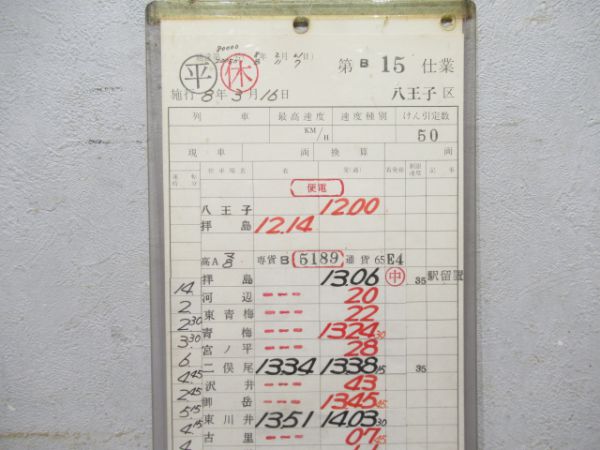 第 B 15 仕業
平 休
施行 8年 3月 16日 八王子 区
列車 最高速度 KM/H 速度種別 けん引定数 50
現車 両 換算 両
運転時分 停車場名 着 発(通) 着発線 制限速度 記事
便電
八王子 12.00
拝島 12.14
高A 専貨 B 5189 通貨 65 E4
拝島 13.06 中 35 駅留置
14 河辺 --- 20
2 東青梅 --- 22
2 30 青梅 --- 1324 30
3 30 宮ノ平 --- 28
6 二俣尾 1334 1338 15 35
4 45 沢井 --- 43
2 45 御岳 --- 1345 45
5 15 東川井 1351 1403 30
4 15 古里 --- 07 45